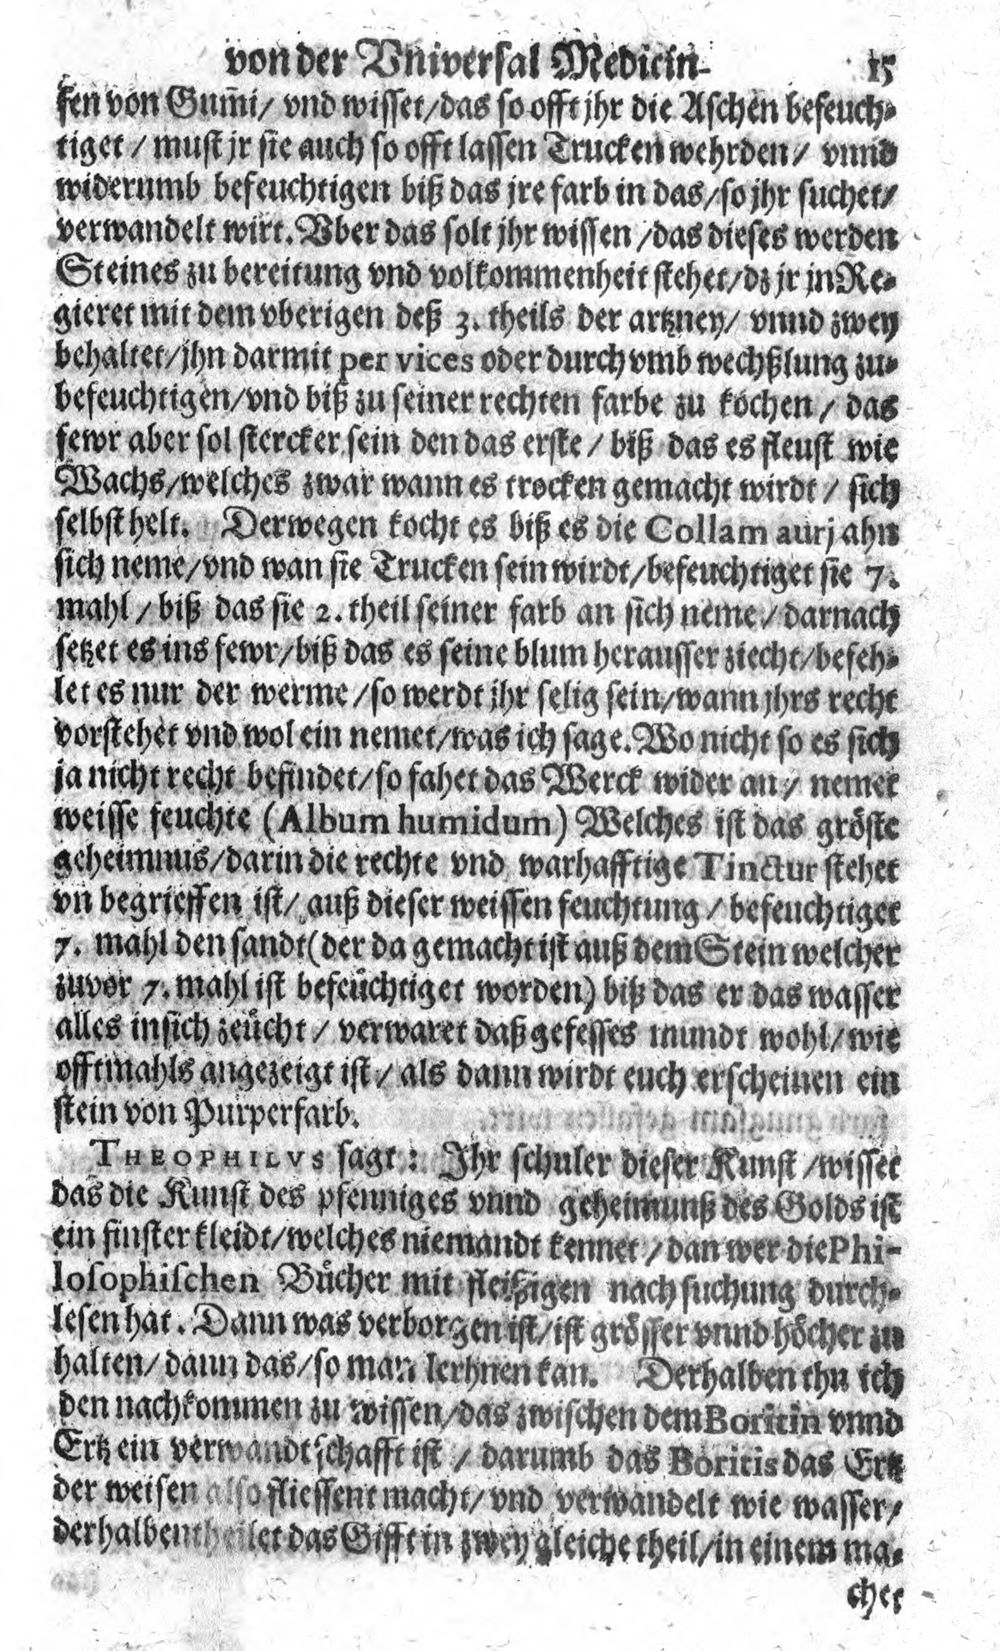 von der Vniversal Medicin. 15
sen von Gum̃i/ vnd wisset/das so offt jhr die Aschen befeuch⸗
tiget / must jr sie auch so offt lassen Trucken wehrden/ vnnd
widerumb befeuchtigen biß das jre farb in das/so jhr suchet/
verwandelt wirt. Vber das solt jhr wissen /das dieses werden
Steines zu bereitung vnd volkommenheit stehet/dz jr jn Re⸗
gieret mit dem vberigen deß 3. theils der artzney/ vnnd zwey
behaltet/jhn darmit per vices oder durch vmb wechßlung zu⸗
befeuchtigen/vnd biß zu seiner rechten farbe zu kochen / das
fewr aber sol stercker sein den das erste / biß das es fleust wie
Wachs/welches zwar wann es trocken gemacht wirdt / sich
selbst helt. Derwegen kocht es biß es die Collam aurj ahn
sich neme/vnd wan sie Trucken sein wirdt/befeuchtiget sie 7.
mahl / biß das sie 2. theil seiner farb an sich neme / darnach
setzet es ins fewr/biß das es seine blum herausser ziecht/befeh⸗
let es nur der werme /so werdt jhr selig sein/wann jhrs recht
vorstehet vnd wol ein nemet/was ich sage. Wo nicht so es sich
ja nicht recht befindet/so fahet das Werck wider an / nemet
weisse feuchte (Album humidum) Welches ist das gröste
geheimnus/darin die rechte vnd warhafftige Tinctur stehet
vn begrieffen ist/ auß dieser weissen feuchtung / befeuchtiget
7. mahl den sandt(der da gemacht ist auß dem Stein welcher
zuvor 7. mahl ist befeuchtiget worden) biß das er das wasser
alles insich zeucht / verwaret daß gefesses mundt wohl/wie
offtmahls angezeigt ist / als dann wirdt euch erscheinen ein
stein von Purperfarb.
THEOPHILVS sagt : Jhr schuler dieser Kunst /wisset
das die Kunst des pfenniges vnnd geheimunß des Golds ist
ein finster kleidt/welches niemandt kennet / dan wer die Phi-
losophischen Bücher mit fleissigen nach suchung durch⸗
lesen hat. Dann was verborgen ist/ist grösser vnnd höcher zu
halten/ dann das/so man lerhnen kan. Derhalben thu ich
den nachkommen zu wissen/das zwischen dem Boritin vnnd
Ertz ein verwandtschafft ist / darumb das Boritis das Ertz
der weisen also fliessent macht/ vnd verwandelt wie wasser/
derhalben theilet das Gifft in zwey gleiche theil/in einem ma⸗
chet